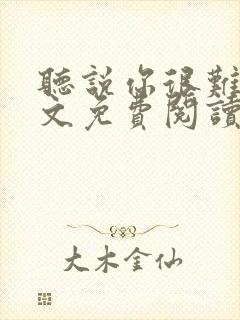 聽說你很難
文免費閱讀
大木金仙